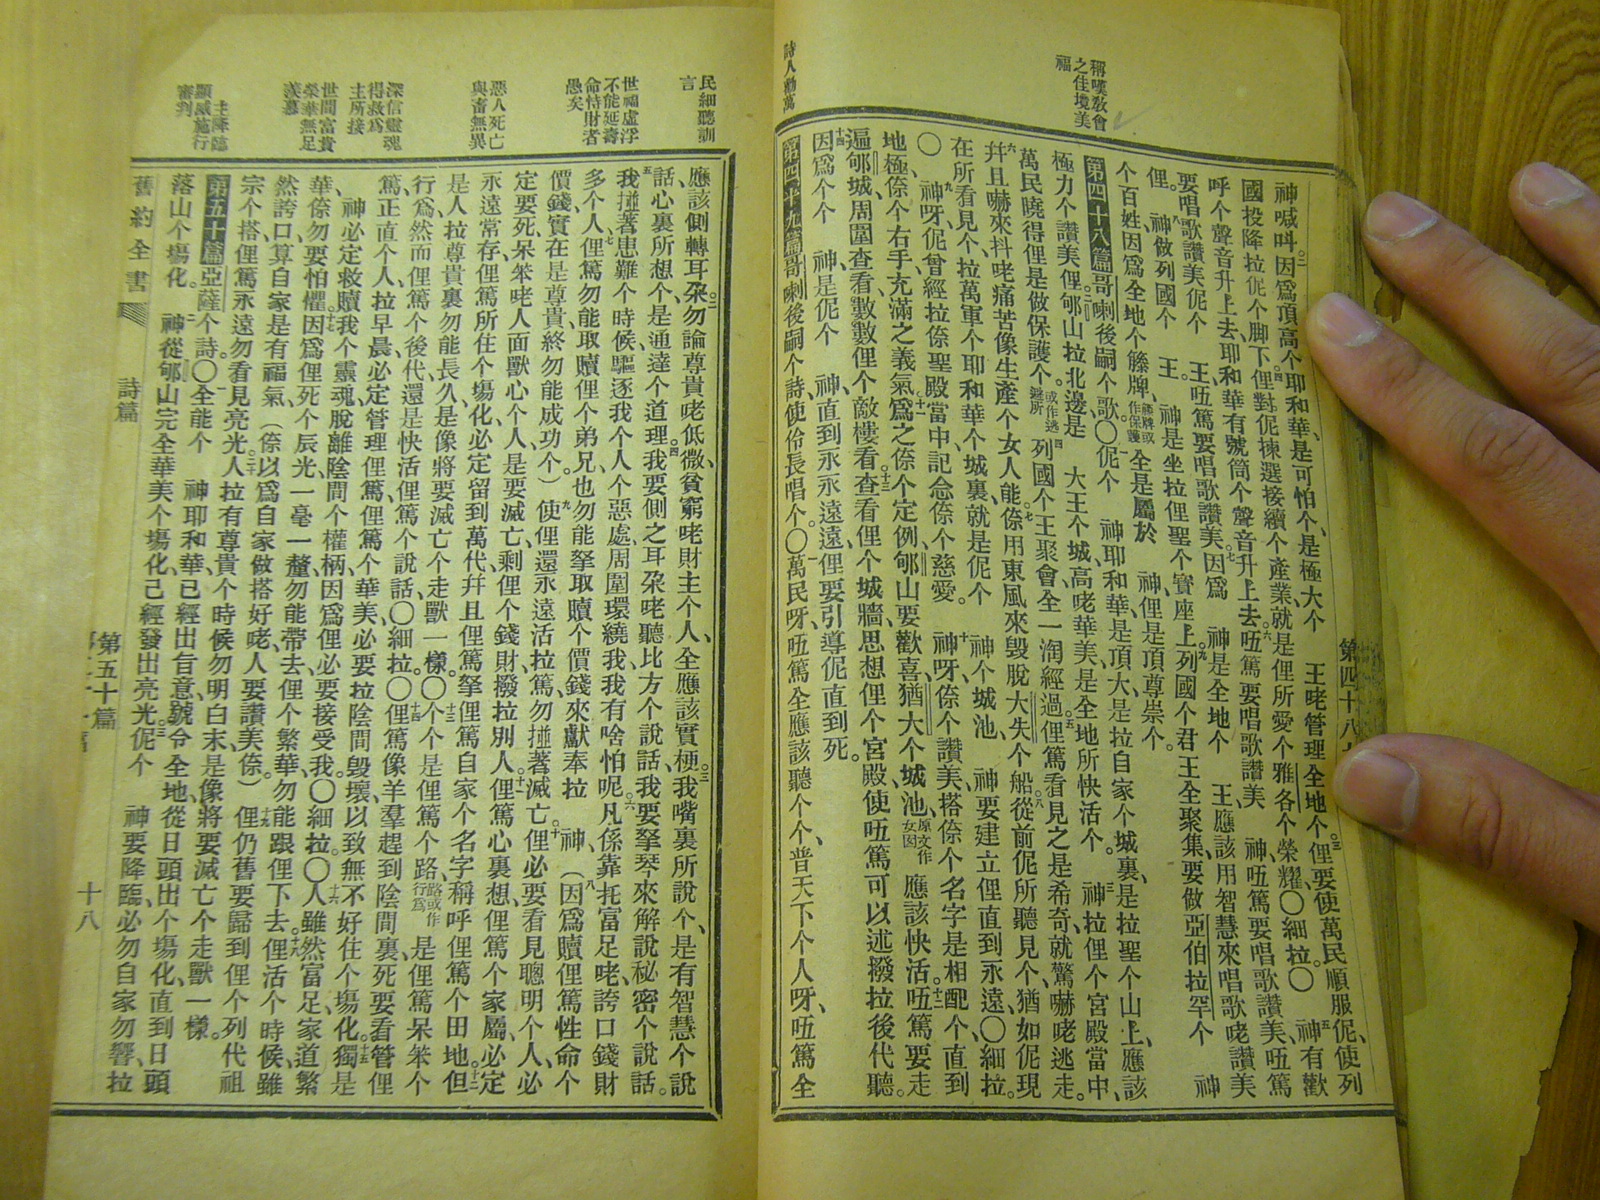 稱嘆敎會
之佳境美
福
詩人勸萬
第四十八
神喊叫。二因爲頂高个耶和華、是可怕个、是極大个　王咾管理全地个。三俚要使萬民順服伲、使列
國投降拉伲个脚下。四俚對伲揀選接續个產業、就是俚所愛个雅各个榮耀。〇細拉。〇五　神有歡
呼个聲音升上去、耶和華有號筒个聲音升上去。六㕶篤要唱歌讚美　神、㕶篤要唱歌讚美、㕶篤
要唱歌讚美伲个　王、㕶篤要唱歌讚美。七因爲　神是全地个　王、應該用智慧來唱歌咾讚美
俚。八　神做列國个　王。　神是坐拉俚聖个寶座上。九列國个君王全聚集、要做亞伯拉罕个　神
个百姓、因爲全地个籐牌、籐牌或作保護全是屬於　神、俚是頂尊崇个。
第四十八篇哥喇後嗣个歌。〇一伲个　神耶和華、是頂大、是拉自家个城裏、是拉聖个山上、應該
極力个讚美俚。二郇山拉北邊是　大王个城、高咾華美、是全地所快活个。三　神拉俚个宮殿當中、
萬民曉得俚是做保護个。或作逃避所四列國个王聚會全一淘經過。五俚篤看見之是希奇、就驚嚇咾逃走。
六幷且嚇來抖咾痛苦像生產个女人能。七倷用東風來毀脫大失个船。八從前伲所聽見个、猶如伲現
在所看見个、拉萬軍个耶和華个城裏、就是伲个　神个城池、　神要建立俚直到永遠。〇細拉。
〇九　神呀、伲曾經拉倷聖殿當中、記念倷个慈愛。十　神呀、倷个讚美搭倷个名字是相配个、直到
地極、倷个右手、充滿之義氣。十一爲之倷个定例、郇山要歡喜、猶大个城池、原文作女囡應該快活。十二㕶篤要走
遍郇城、周圍查看、數數俚个敵樓。十三看查看俚个城牆、思想俚个宮殿、使㕶篤可以述撥拉後代聽。
十四因爲个个　神、是伲个　神、直到永永遠遠、俚要引導伲直到死。
第四十九篇哥喇後嗣个詩、使伶長唱个。〇一萬民呀、㕶篤全應該聽个个、普天下个人呀、㕶篤全
民細聽訓
言
世福虛浮
不能延壽
命恃財者
愚矣
惡人死亡
與畜無異
深信靈魂
得救爲
主所接
世間富貴
榮華無足
羨慕
主降臨
顯威施行
審判
應該側轉耳朶。二勿論尊貴咾低微、貧窮咾財主个人、全應該實梗。三我嘴裏所說个、是有智慧个說
話、心裏所想个是通達个道理。四我要側之耳朶咾聽比方个說話、我要拏琴來解說秘密个說話。
五我㨻著患難个時候、驅逐我个人个惡處、周圍環繞我、我有啥怕呢。六凡係靠托富足咾、誇口錢財
多个人、七俚篤勿能取贖俚个弟兄、也勿能拏取贖个價錢來獻奉拉　神、八（因爲贖俚篤性命个
價錢、實在是尊貴、終勿能成功个）九使俚還永遠活拉、篤勿㨻著滅亡。十俚必要看見聰明个人、必
定要死、呆笨咾人面獸心个人、是要滅亡、剩俚个錢財撥拉別人。十一俚篤心裏想、俚篤个家屬、必定
永遠常存、俚篤所住个塲化、必定留到萬代、幷且俚篤拏俚篤自家个名字、稱呼俚篤个田地。十二但
是人拉尊貴裏勿能長久、是像將要滅亡个走獸一樣。〇十三个个是俚篤个路、路或作行爲是俚篤呆笨个
行爲、然而俚篤个後代、還是快活俚篤个說話。〇細拉。〇十四俚篤像羊羣趕到陰間裏、死要看管俚
篤、正直个人、拉早晨必定管理俚篤、俚篤个華美、必要拉陰間毀壞、以致無不好住个塲化。十五獨是
　神必定救贖我个靈魂、脫離陰間个權柄、因爲俚必要接受我。〇細拉。〇十六人雖然富足、家道繁
華、倷勿要怕懼。十七因爲俚死个辰光、一毫一釐勿能帶去、俚个繁華、勿能跟俚下去。十八俚活个時候、雖
然誇口、算自家是有福氣、（倷以爲自家做搭好咾、人要讚美倷。）十九俚仍舊要歸到俚个列代祖
宗个搭、俚篤永遠勿看見亮光。二十人拉有尊貴个時候、勿明白末、是像將要滅亡个走獸一樣。
第五十篇亞薩个詩。〇一全能个　神耶和華、已經出台意、號令全地、從日頭出个塲化、直到日頭
落山个塲化。二　神從郇山完全華美个塲化、己經發出亮光。三伲个　神要降臨、必勿自家勿響、拉
舊約全書　詩篇　第五十篇　十八